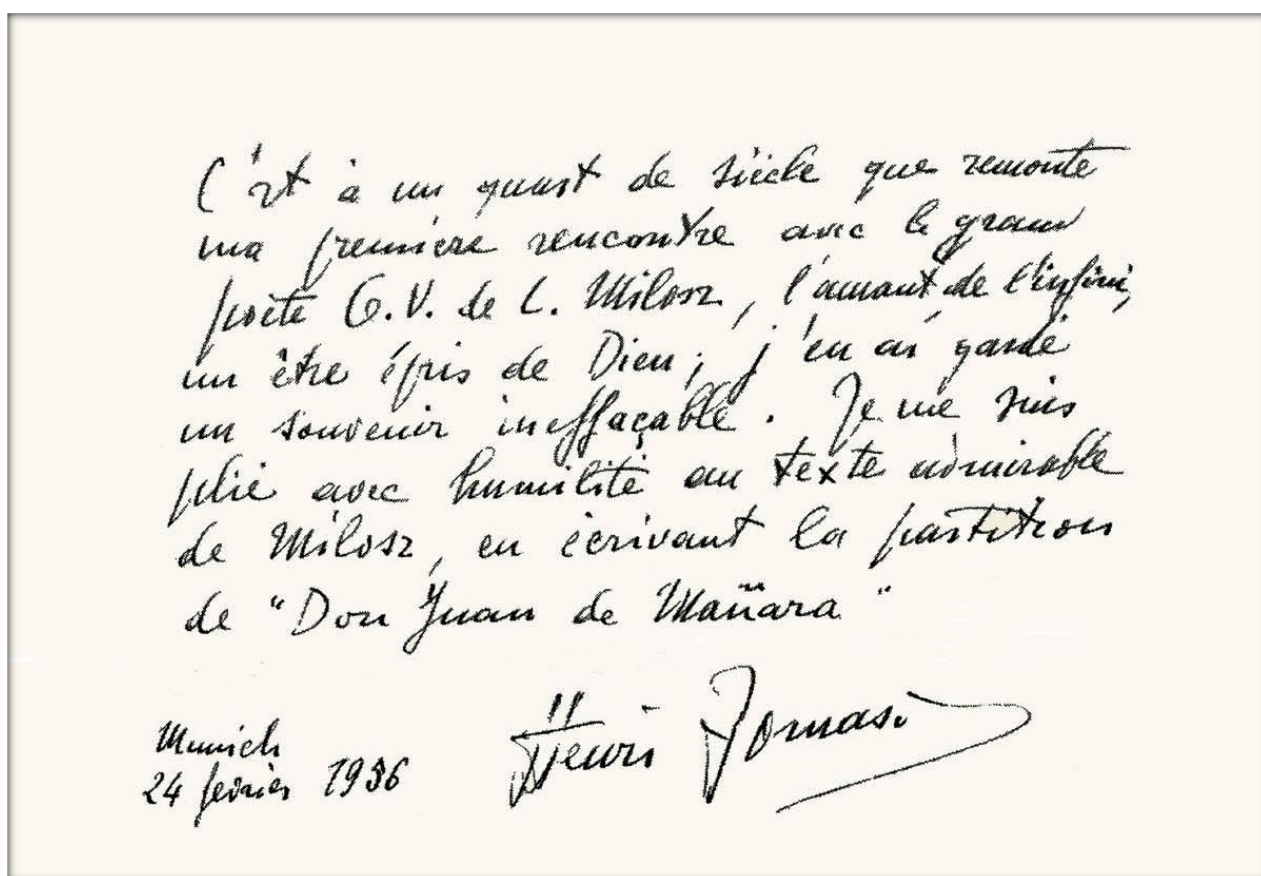 C'est à un quart de siècle que remonte
ma première rencontre avec le grand
poète O.V. de L. Milosz, l'amant de l'infini,
un être épris de Dieu ; j'en ai gardé
un souvenir ineffaçable. Je me suis
plié avec humilité au texte admirable
de Milosz, en écrivant la partition
de "Don Juan de Mañara"
Munich
24 février 1956
Henri Tomasi